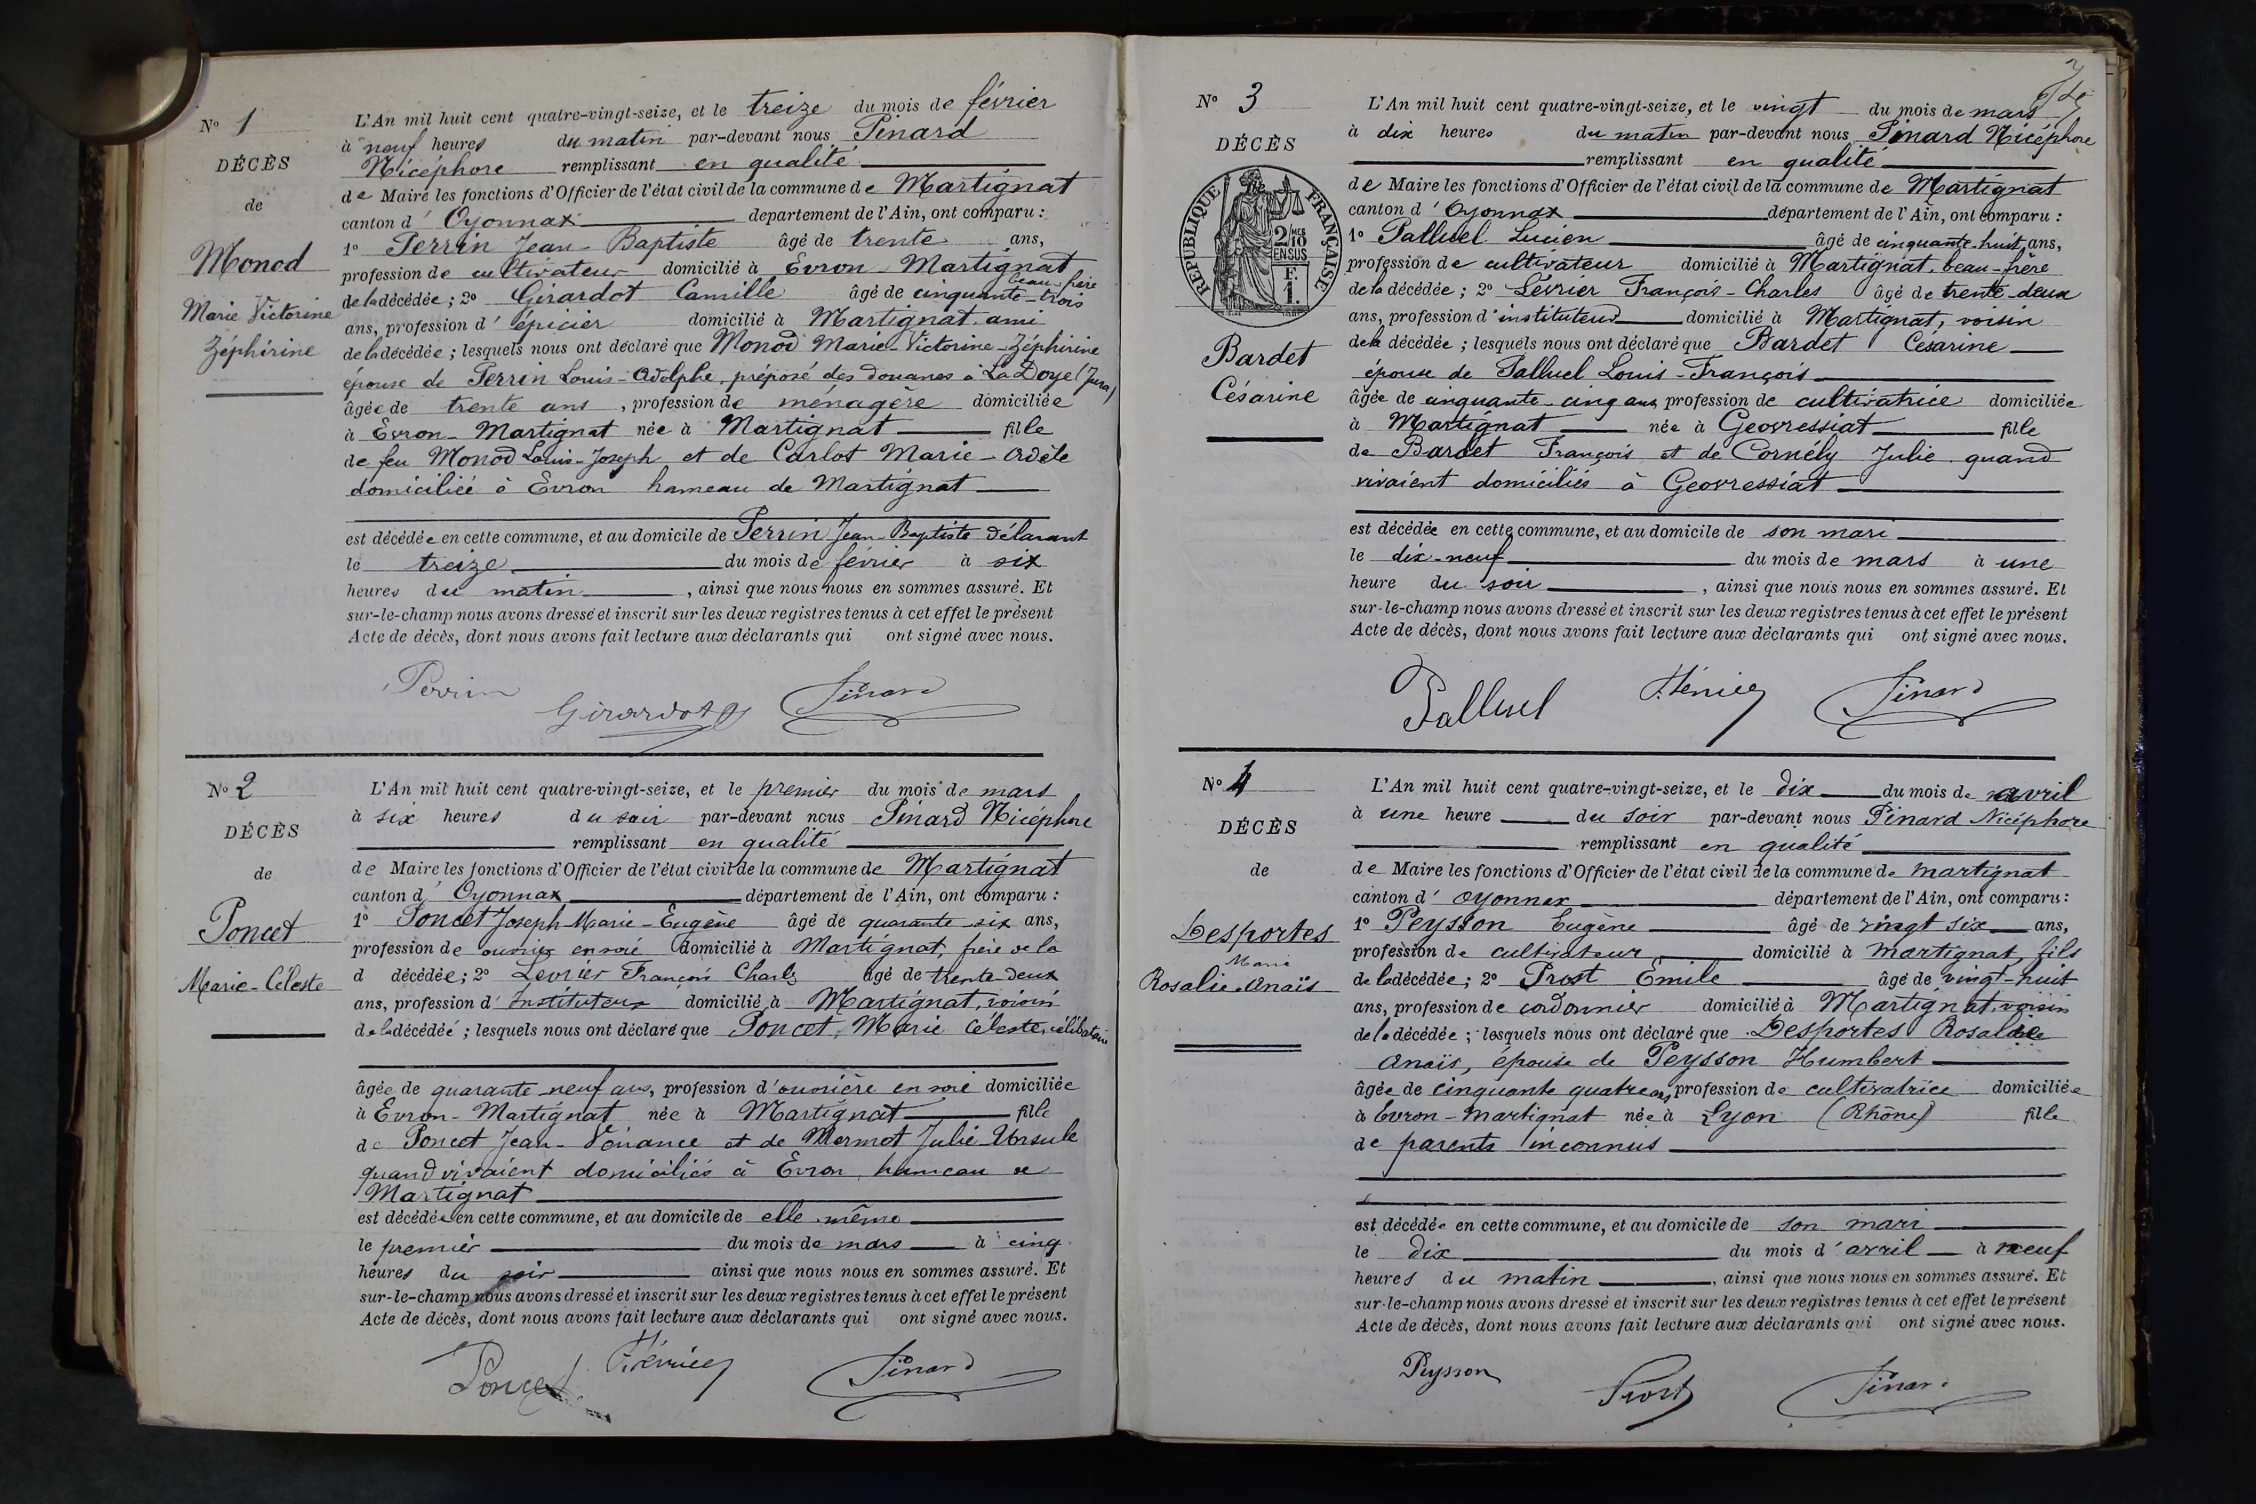 N° 1
DÉCÈS
de
Monod
Marie Victorine
Zéphirine
L'An mil huit cent quatre-vingt-seize, et le treize du mois de février
à neuf heures du matin par-devant nous Pinard
Nicéphore remplissant en qualité
de Maire les fonctions d'Officier de l'état civil de la commune de Martignat
canton d'Oyonnax département de l'Ain, ont comparu :
1° Perrin Jean-Baptiste âgé de trente ans,
profession de cultivateur domicilié à Evron-Martignat beau-frère
de la décédée ; 2° Girardot Camille âgé de cinquante-trois
ans, profession d'épicier domicilié à Martignat, ami
de la décédée ; lesquels nous ont déclaré que Monod Marie-Victorine-Zéphirine
épouse de Perrin Louis-Adolphe, préposé des douanes à La Doye (Jura)
âgée de trente ans, profession de ménagère domiciliée
à Evron-Martignat née à Martignat fille
de feu Monod Louis-Joseph et de Carlot Marie-Adèle
domiciliée à Evron hameau de Martignat
est décédée en cette commune, et au domicile de Perrin Jean-Baptiste délarant
le treize du mois de février à six
heures du matin, ainsi que nous nous en sommes assuré. Et
sur-le-champ nous avons dressé et inscrit sur les deux registres tenus à cet effet le présent
Acte de décès, dont nous avons fait lecture aux déclarants qui ont signé avec nous.
Perrin Girardot Pinard
N° 2
DÉCÈS
de
Poncet
Marie-Céleste
L'An mil huit cent quatre-vingt-seize, et le premier du mois de mars
à six heures du soir par-devant nous Pinard Nicéphore
remplissant en qualité
de Maire les fonctions d'Officier de l'état civil de la commune de Martignat
canton d'Oyonnax département de l'Ain, ont comparu :
1° Poncet Joseph-Marie-Eugène âgé de quarante six ans,
profession de ouvrier en soie domicilié à Martignat, frère de la
d décédée ; 2° Levrier François Charles âgé de trente deux
ans, profession d'Instituteur domicilié à Martignat, voisin
de la décédée ; lesquels nous ont déclaré que Poncet, Marie Céleste, célibataire
âgée de quarante neuf ans, profession d'ouvrière en soie domiciliée
à Evron-Martignat née à Martignat fille
de Poncet Jean-Vénance et de Mermet Julie-Ursule
quand vivaient domiciliés à Evron, hameau de
Martignat
est décédée en cette commune, et au domicile de elle même
le premier du mois de mars à cinq
heures du soir ainsi que nous nous en sommes assuré. Et
sur-le-champ nous avons dressé et inscrit sur les deux registres tenus à cet effet le présent
Acte de décès, dont nous avons fait lecture aux déclarants qui ont signé avec nous.
Poncet F. Lévrier Pinard
N° 3
DÉCÈS
RÉPUBLIQUE FRANÇAISE
2/10 EN SUS
F. 1.
Bardet
Césarine
L'An mil huit cent quatre-vingt-seize, et le vingt du mois de mars
à dix heures du matin par-devant nous Pinard Nicéphore
remplissant en qualité
de Maire les fonctions d'Officier de l'état civil de la commune de Martignat
canton d'Oyonnax département de l'Ain, ont comparu :
1° Palluel Lucien âgé de cinquante-huit ans,
profession de cultivateur domicilié à Martignat, beau-frère
de la décédée ; 2° Lévrier François-Charles âgé de trente-deux
ans, profession d'instituteur domicilié à Martignat, voisin
de la décédée ; lesquels nous ont déclaré que Bardet Césarine
épouse de Palluel Louis-François
âgée de cinquante-cinq ans, profession de cultivatrice domiciliée
à Martignat née à Geovressiat fille
de Bardet François et de Cornély Julie quand
vivaient domiciliés à Geovressiat
est décédée en cette commune, et au domicile de son mari
le dix-neuf du mois de mars à une
heure du soir, ainsi que nous nous en sommes assuré. Et
sur-le-champ nous avons dressé et inscrit sur les deux registres tenus à cet effet le présent
Acte de décès, dont nous avons fait lecture aux déclarants qui ont signé avec nous.
Palluel F. Lévrier Pinard
N° 4
DÉCÈS
de
Desportes
Marie
Rosalie Anaïs
L'An mil huit cent quatre-vingt-seize, et le dix du mois de avril
à une heure du soir par-devant nous Pinard Nicéphore
remplissant en qualité
de Maire les fonctions d'Officier de l'état civil de la commune de Martignat
canton d'Oyonnax département de l'Ain, ont comparu :
1° Peysson Eugène âgé de vingt six ans,
profession de cultivateur domicilié à Martignat, fils
de la décédée ; 2° Prost Emile âgé de vingt-huit
ans, profession de cordonnier domicilié à Martignat, voisin
de la décédée ; lesquels nous ont déclaré que Desportes Rosalie
Anaïs, épouse de Peysson Humbert
âgée de cinquante quatre ans, profession de cultivatrice domiciliée
à Evron-Martignat née à Lyon (Rhône) fille
de parents inconnus
est décédée en cette commune, et au domicile de son mari
le dix du mois d'avril à neuf
heures du matin, ainsi que nous nous en sommes assuré. Et
sur-le-champ nous avons dressé et inscrit sur les deux registres tenus à cet effet le présent
Acte de décès, dont nous avons fait lecture aux déclarants qui ont signé avec nous.
Peysson Prost Pinard